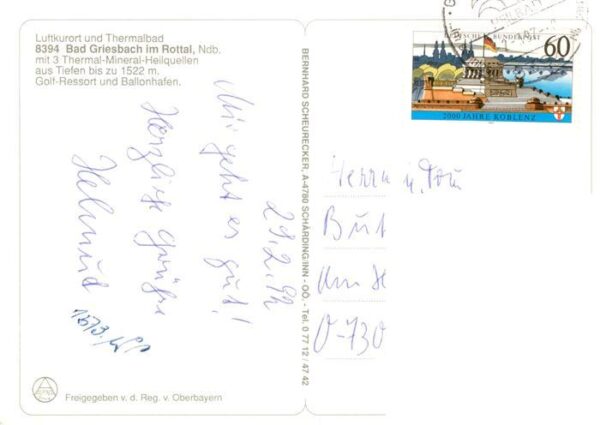 Luftkurort und Thermalbad
8394 Bad Griesbach im Rottal, Ndb.
mit 3 Thermal-Mineral-Heilquellen
aus Tiefen bis zu 1522 m.
Golf-Ressort und Ballonhafen.
29.2.92
Mir geht es gut!
Herzliche Grüße
Helmut
BERNHARD SCHEURECKER, A-4780 SCHÄRDING/INN - OÖ. - Tel. 0 77 12 / 47 42
DEUTSCHE BUNDESPOST
60
2000 JAHRE KOBLENZ
Herrn u. Frau
But
Am
O-730
Freigegeben v. d. Reg. v. Oberbayern